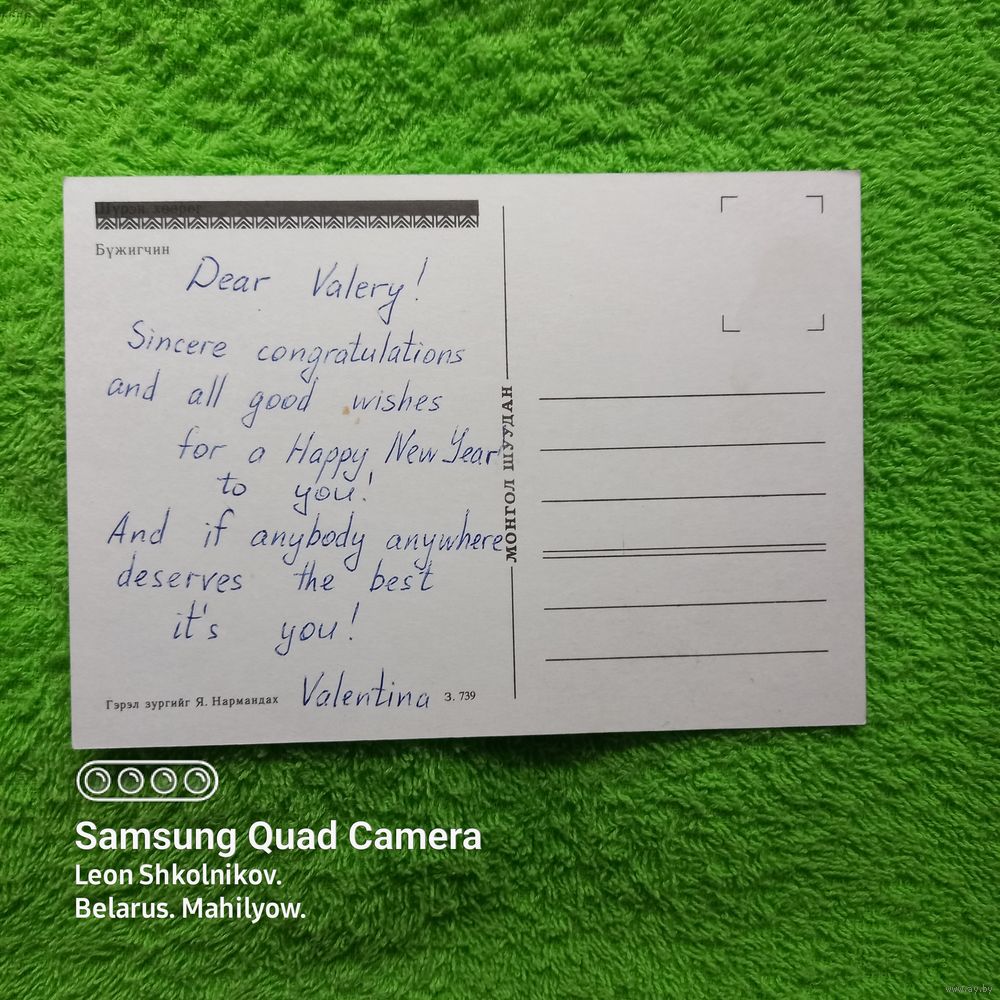 Шүрэн хөөрөг
Бүжигчин
Dear Valery!
Sincere congratulations
and all good wishes
for a Happy New Year
to you!
And if anybody anywhere
deserves the best
it's you!
Valentina
Гэрэл зургийг Я. Нармандах
З. 739
МОНГОЛ ШУУДАН
Samsung Quad Camera
Leon Shkolnikov.
Belarus. Mahilyow.
www.ay.by